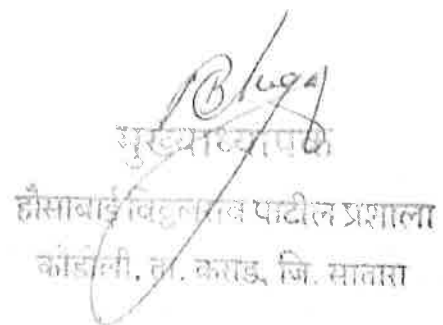 मुख्याध्यापक
हौसाबाई विठ्ठलराव पाटील प्रशाला
कोडोली, ता. कराड, जि. सातारा